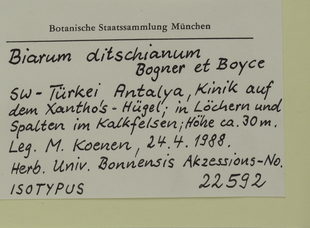 Botanische Staatssammlung München
Biarum ditschianum
Bogner et Boyce
SW-Türkei Antalya, Kinik auf
dem Xanthos-Hügel; in Löchern und
Spalten im Kalkfelsen; Höhe ca. 30 m.
Leg. M. Koenen, 24.4.1988.
Herb. Univ. Bonnensis Akzessions-No.
ISOTYPUS 22592